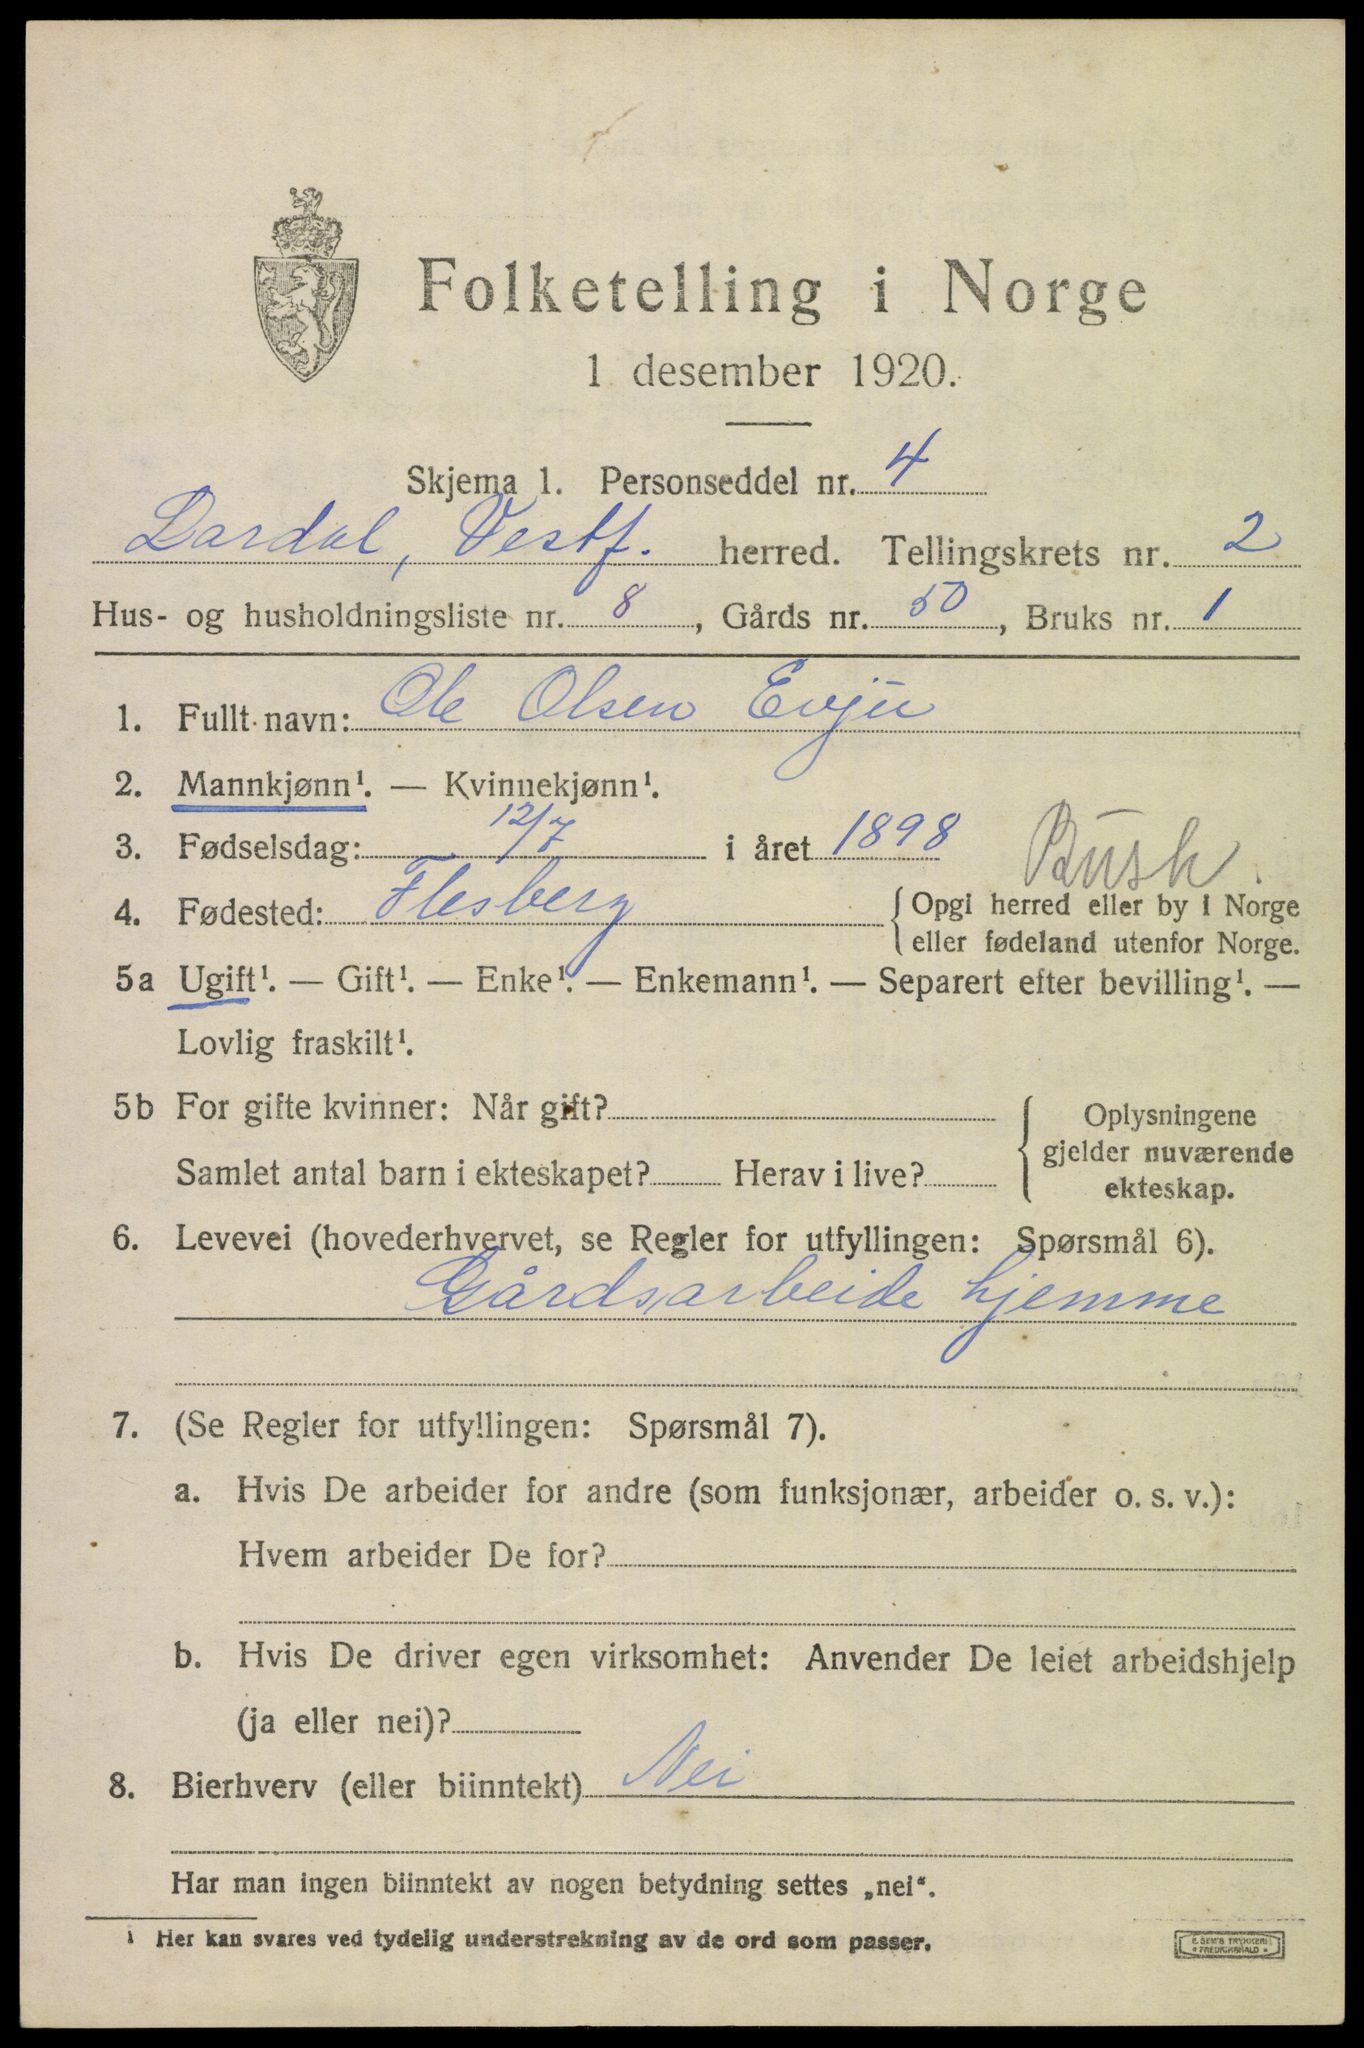 Folketelling i Norge
1 desember 1920.
Skjema 1. Personseddel nr. 4
Lardal, Vestf. herred. Tellingskrets nr. 2
Hus- og husholdningsliste nr. 8, Gårds nr. 50, Bruks nr. 1
1. Fullt navn: Ole Olsen Evju
2. Mannkjønn¹. — Kvinnekjønn¹.
3. Fødselsdag: 12/7 i året 1898
Busk.
4. Fødested: Flesberg { Opgi herred eller by i Norge
eller fødeland utenfor Norge.
5a Ugift¹. — Gift¹. — Enke¹. — Enkemann¹. — Separert efter bevilling¹. —
Lovlig fraskilt¹.
5b For gifte kvinner: Når gift?
Samlet antal barn i ekteskapet? Herav i live?
{ Oplysningene
gjelder nuværende
ekteskap.
6. Levevei (hovederhvervet, se Regler for utfyllingen: Spørsmål 6).
Gårdsarbeide hjemme
7. (Se Regler for utfyllingen: Spørsmål 7).
a. Hvis De arbeider for andre (som funksjonær, arbeider o. s. v.):
Hvem arbeider De for?
b. Hvis De driver egen virksomhet: Anvender De leiet arbeidshjelp
(ja eller nei)?
8. Bierhverv (eller biinntekt) Nei
Har man ingen biinntekt av nogen betydning settes „nei“.
¹ Her kan svares ved tydelig understrekning av de ord som passer.
E. SEM'S TRYKKERI
• FREDRIKSHALD •